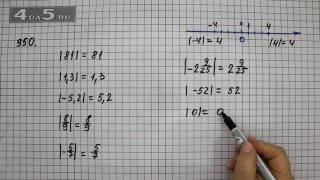 4DA5.RU
950.
|81| = 81
|1,3| = 1,3
|-5,2| = 5,2
|8/9| = 8/9
|-5/7| = 5/7
-4 0 1 4
|-4| = 4 0 |4| = 4
|-2 9/25| = 2 9/25
|-52| = 52
|0| = 0